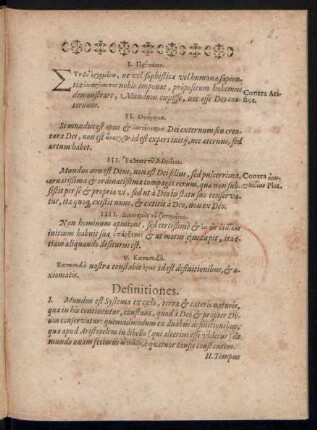 I. Πρότασις.
ne vel sophistica vel humana sapien-
nobis imponat, propositum habemus
demonstrare, Mundum cœpisse, nec esse Deo coæ-
ternum.
Contra Ari-
II.
Si mundus est opus & Dei externum seu crea-
tura Dei, non est id est expers initij, nec æternus, sed
actum habet.
III.
Mundus non est Deus, non est Dei filius, sed pulcerrima,
ornatissima & ordinatissima compages rerum, quæ non sub-
sistit per se & propria vi, sed ut à Deo is statu suo conserva-
tur, ita quoq, existit nunc, & extitit à Deo, non ex Deo.
Contra
Pla-
IIII.
Non hominum opinione, sed certissimè &
initium habuit sua & ut motus ejus cœpit, ita &
etiam aliquando desiturus est.
V. Κατασκευὴ.
Κατασκευὴ nostra constabit id est definitionibus, &
axiomatis.
Definitiones.
I. Mundus est Systema ex cœlo, terra & cæteris naturis,
quæ in his continentur, constans, quod à Deo & propter De-
um conservatur: quemadmodum ex duabus definitionibus,
quæ apud Aristotelem in libello (qui alterius esse videtur) de
mundo unam fecimus & quatuor causis constantem.
II. Tempus